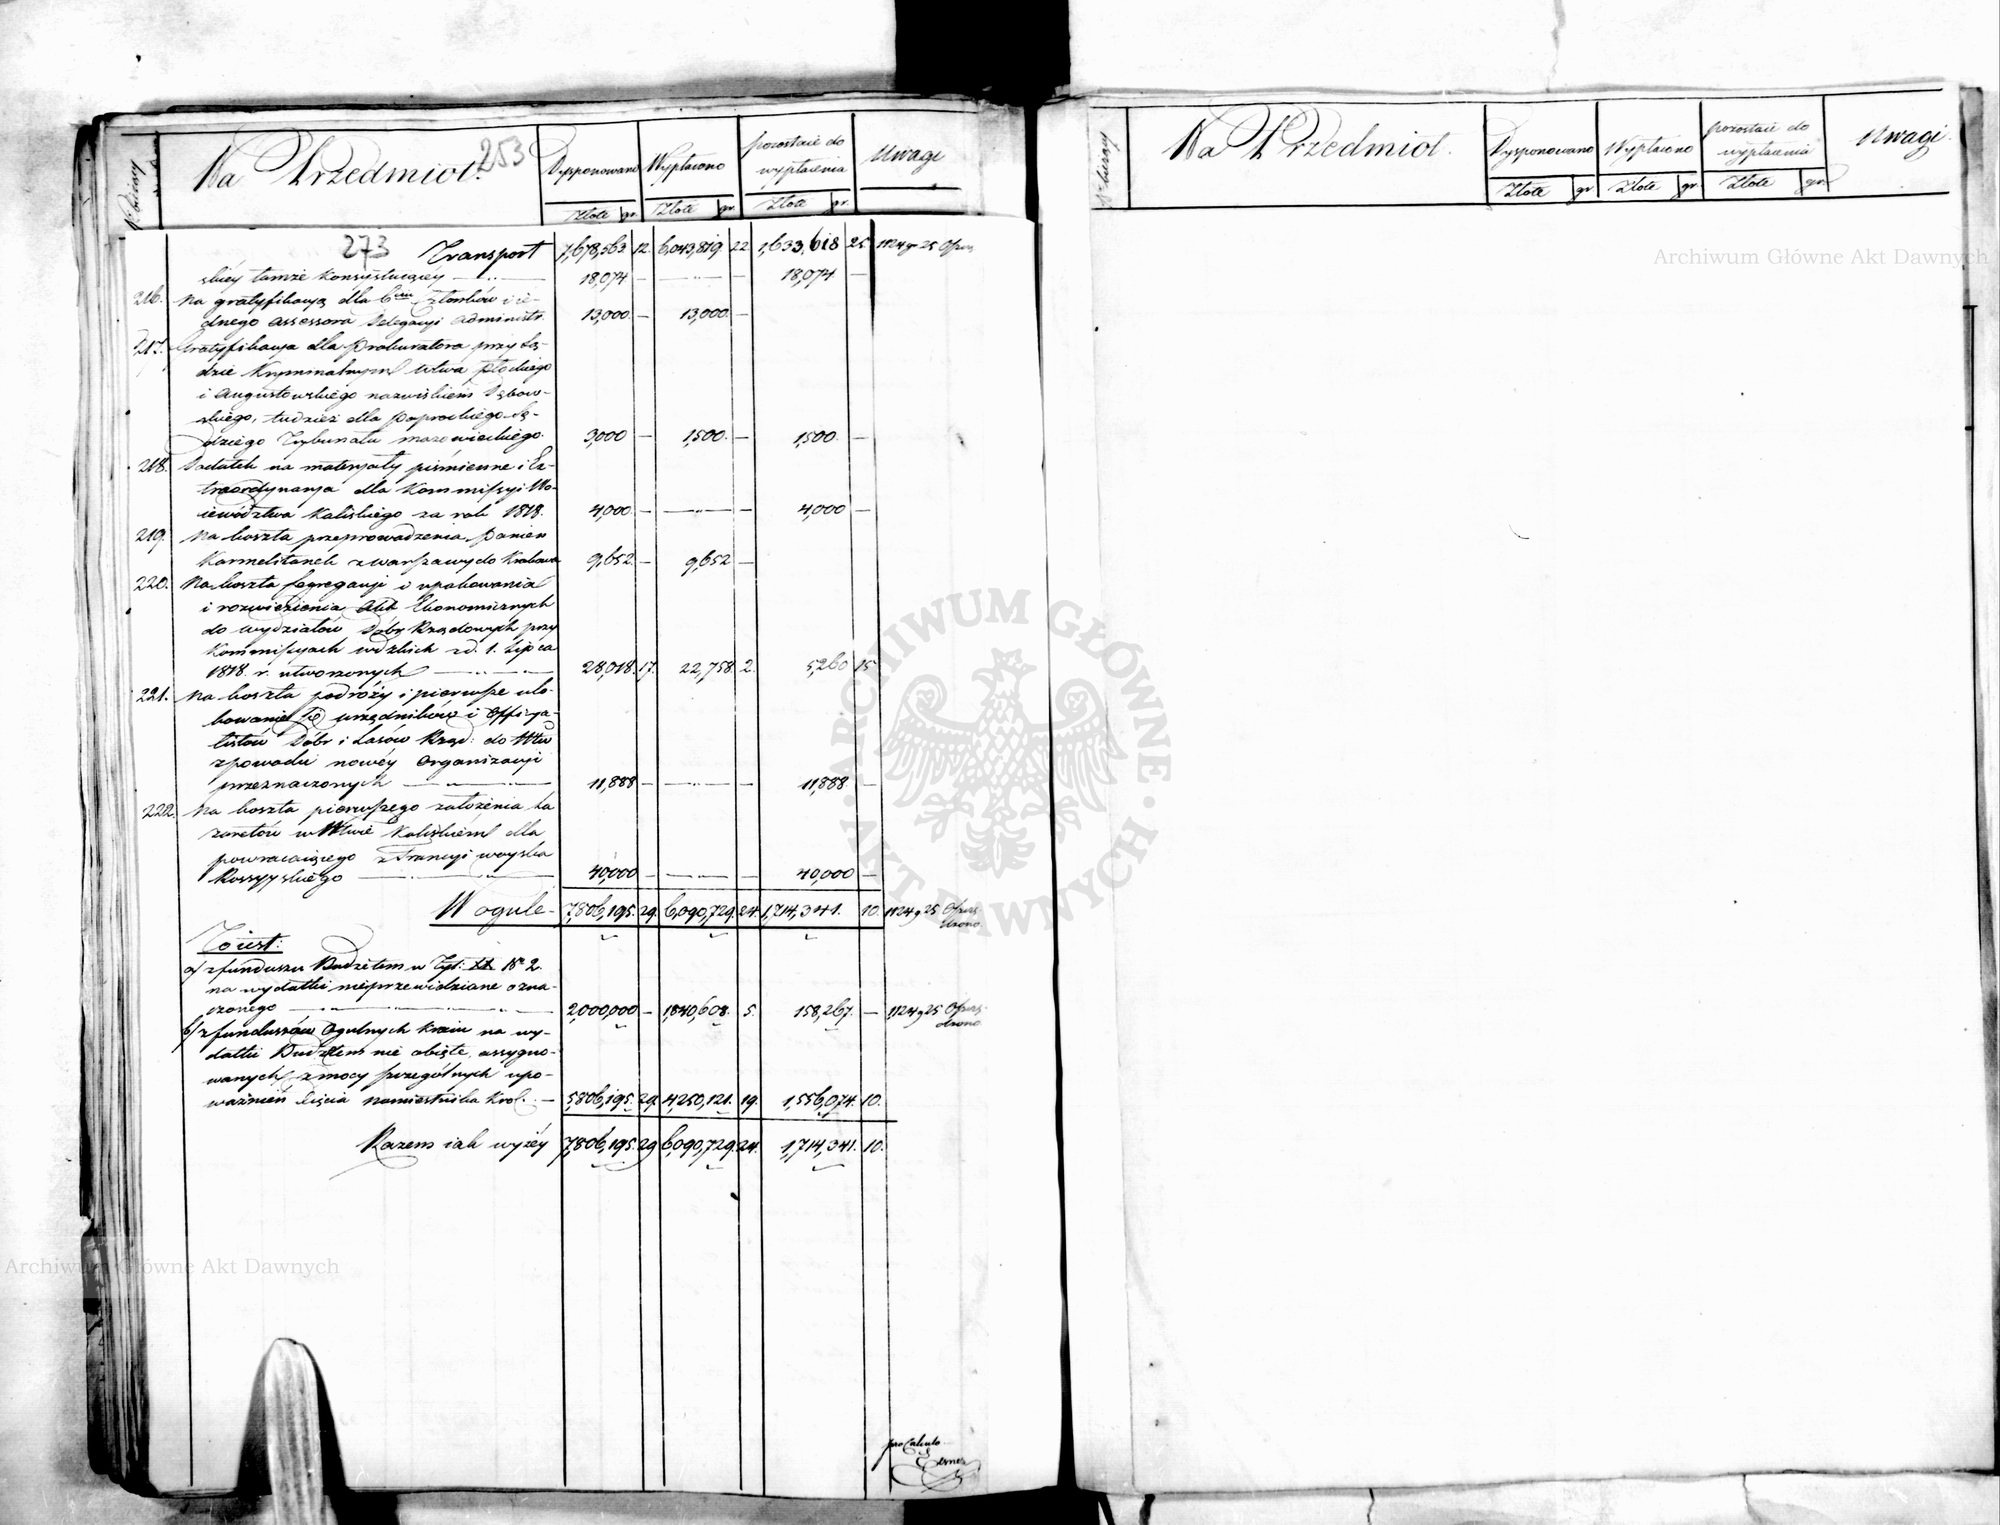 Na Przedmiot. 253 Dysponowano Wypłacono pozostaie do wypłacenia Uwagi
Złote gr. Złote gr. Złote gr.
273 Transport 7,678,563 12. 6,043,819. 22 1,633,618 25 1124 g 25
skiey tamże konsystuiącey 18,074 — — 18,074 —
216. Na gratyfikacyą dla 6ciu członków i ie-
dnego assessora Delegacyi administr. 13,000. — 13,000. —
217. Gratyfikacya dla Prokuratora przy Są-
dzie Kryminalnym Wtwa Płockiego
i Augustowskiego nazwiskiem Dębow-
skiego, tudzież dla Paprockiego Sę-
dziego Trybunału mazowieckiego. 3,000 — 1,500. — 1,500. —
218. Dodatek na materyały piśmienne i Ex-
traordynarya dla Kommissyi Wo-
iewództwa Kaliskiego za rok 1818. 4,000. — — — 4,000 —
219. Na koszta przeprowadzenia Panien
Karmelitanek z Warszawy do Krakowa 9,652. — 9,652 —
220. Na koszta segregacyi i upakowania
i rozwiezienia Akt Ekonomicznych
do wydziałów Dóbr Rządowych przy
Kommissyach wdzkich z d. 1. Lipca
1818. r. utworzonych 28,018. 17. 22,758. 2. 5,260 15
221. Na koszta podróży i pierwsze ulo-
kowanie się urzędników i Officya-
listów Dóbr i Lasów Rząd: do Wtw
z powodu nowéy Organizacyi
przeznaczonych 11,888 — — — 11,888. —
222. Na koszta pierwszego założenia La-
zaretów w Wtwie Kaliskiem dla
powracaiącego z Francyi woyska
Rossyyskiego 40,000 — — — 40,000 —
W ogule 7,806,195. 29. 6,090,729. 24. 1,714,341. 10. 1124 g 25
To iest:
a) z funduszu Budżetem w Tyt: II No 2.
na wydatki nieprzewidziane ozna-
czonego 2,000,000 — 1,840,608. 5. 158,267. — 1124 g 25
b) z funduszów Ogulnych kraiu na wy-
datki Budżetem nie obięte, assygno-
wanych z mocy szczególnych upo-
ważnień Xięcia Namiestnika Król. 5,806,195. 29. 4,250,121. 19. 1,556,074. 10.
Razem iak wyżéy 7,806,195. 29 6,090,729. 24. 1,714,341. 10.
pro Calculo
Na Przedmiot. Dysponowano Wypłacono pozostaie do wypłacenia Uwagi.
Złote gr Złote gr Złote gr.
Archiwum Główne Akt Dawnych
Archiwum Główne Akt Dawnych
ARCHIWUM GŁÓWNE AKT DAWNYCH